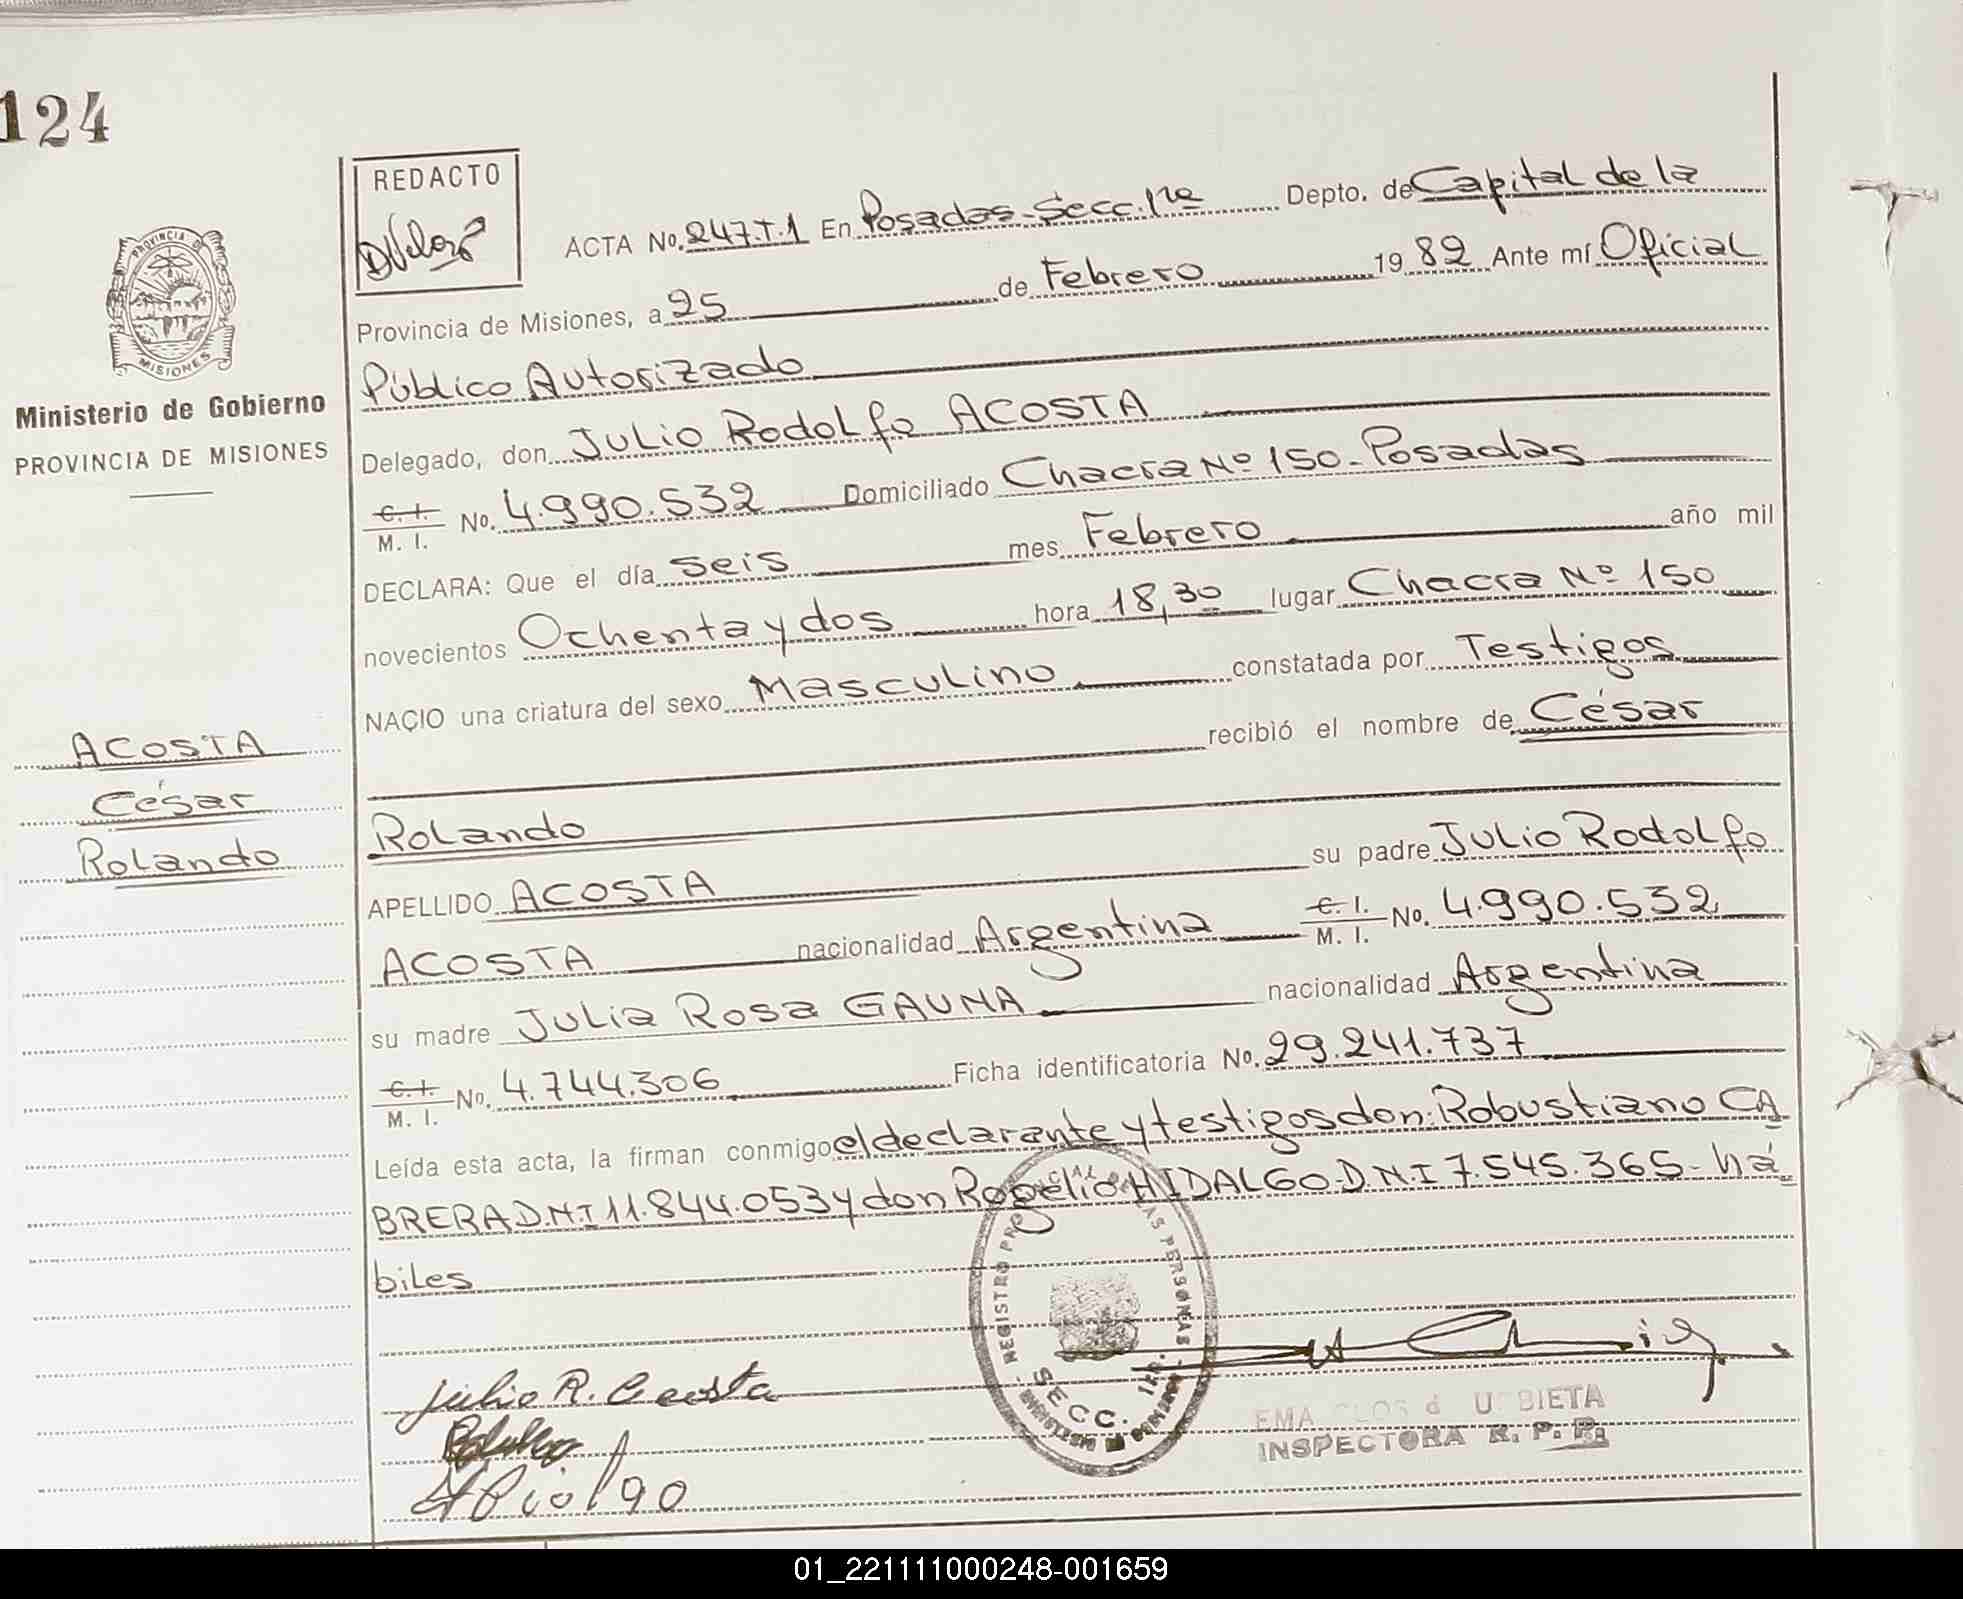 124
REDACTO
ACTA No. 247.T.1 En Posadas-Secc.1ra Depto. de Capital de la
Provincia de Misiones, a 25 de Febrero 1982 Ante mí Oficial
Público Autorizado
Delegado, don Julio Rodolfo ACOSTA
C. I. / M. I. No. 4.990.532 Domiciliado Chacra Nº 150-Posadas
DECLARA: Que el día seis mes Febrero año mil
novecientos Ochenta y dos hora 18,30 lugar Chacra Nº 150
NACIO una criatura del sexo Masculino constatada por Testigos
recibió el nombre de César
Rolando
APELLIDO ACOSTA su padre Julio Rodolfo
ACOSTA nacionalidad Argentina C. I. / M. I. No. 4.990.532
su madre Julia Rosa GAUNA nacionalidad Argentina
C. I. / M. I. No. 4.744.306 Ficha identificatoria No. 29.241.737
Leída esta acta, la firman conmigo el declarante y testigos don: Robustiano CA
BRERA D.N.I 11.844.053 y don Rogelio HIDALGO-D.N.I 7.545.365- há
biles
PROVINCIA DE
MISIONES
Ministerio de Gobierno
PROVINCIA DE MISIONES
ACOSTA
César
Rolando
Julio R. Acosta
REGISTRO PERSONAS
SECC. 1ra.
MISIONES
INSPECTORA R. P. P.
01_221111000248-001659